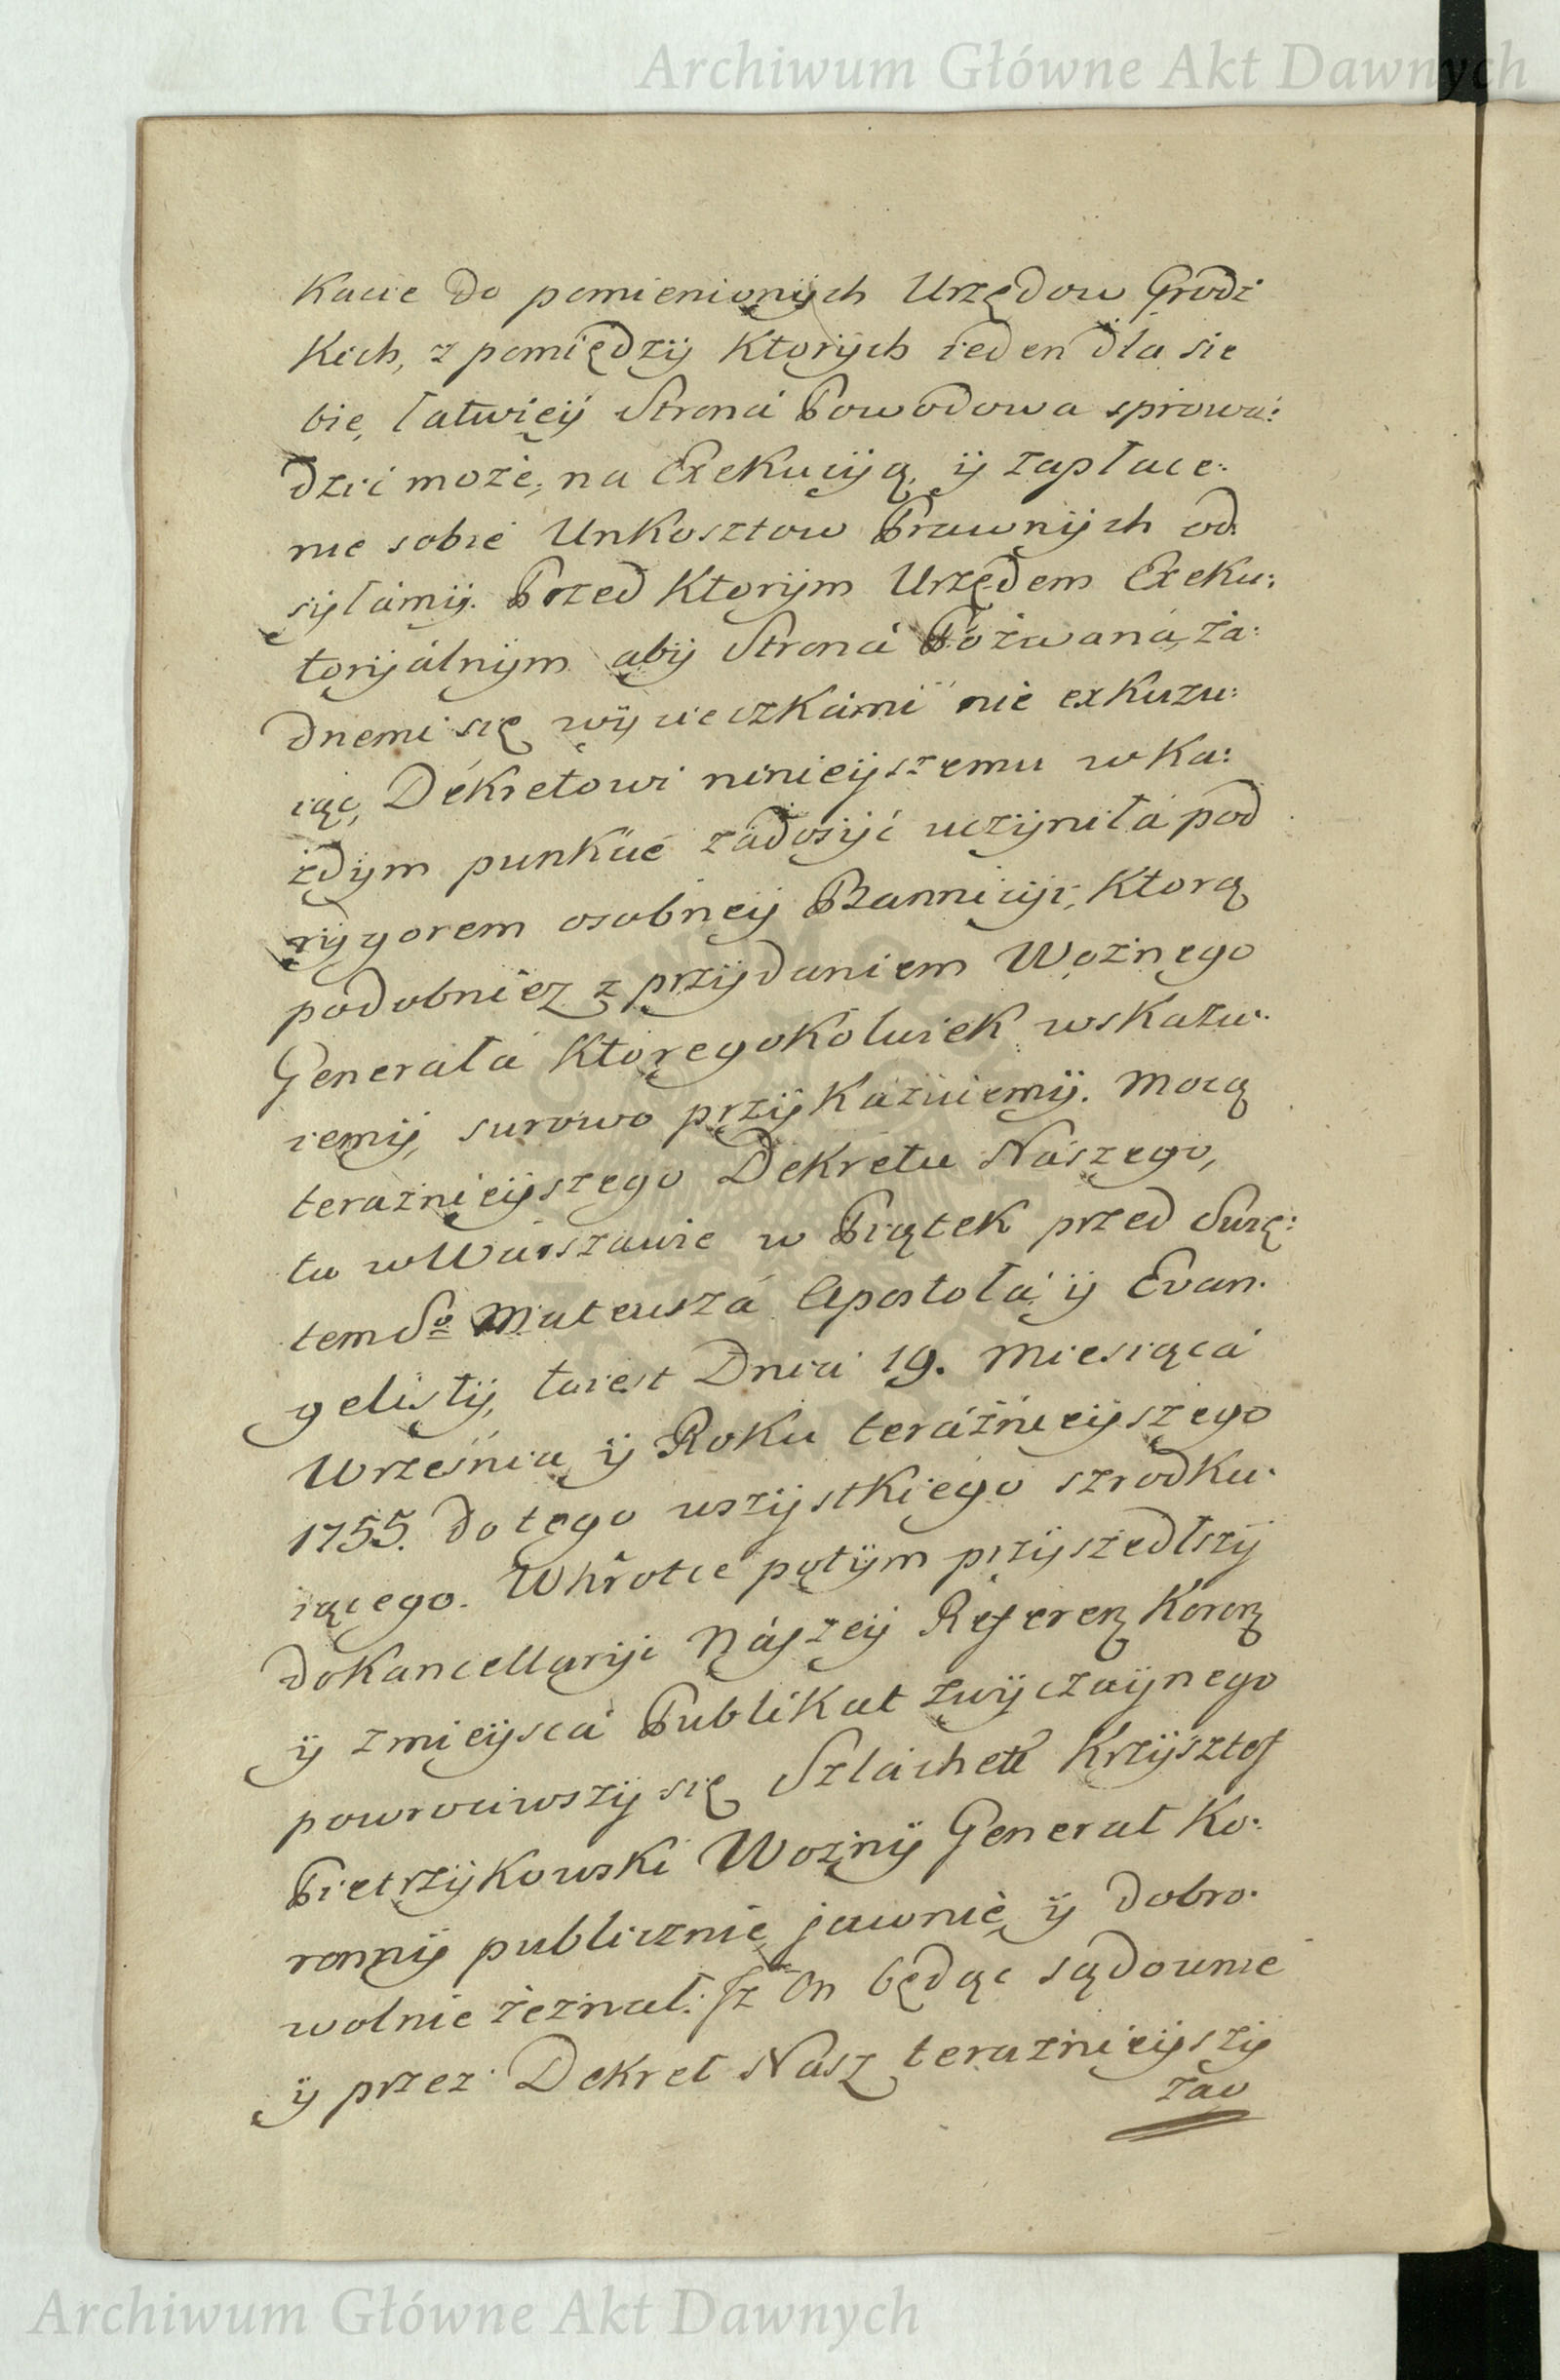 Archiwum Główne Akt Dawnych
Kacie do pomienionÿch Urzędow Grodz
Kich, z pomiędzÿ Ktorÿch ieden dla sie
bie, łatwieÿ Strona Powodowa sprowa:
dzić może, na Exekucÿą, ÿ zapłace:
nie sobie UnKosztow Prawnÿch od:
sÿłamÿ. Przed Ktorÿm Urzędem Exeku:
torÿalnÿm abÿ Strona Pozwana, ża:
dnemi się wÿcieczkami nie exkuzu:
iąc, Dekretowi ninieÿszemu w Ka:
żdÿm punkcie zadosÿć uczÿniła pod
rÿgorem osobneÿ Bannicÿi, Ktorą
podobniez z przÿdaniem Woznego
Generała KtoregoKolwiek wskazu:
iemÿ, surowo przÿKazuiemÿ. Mocą
teraznieÿszego Dekretu Naszego,
tu w Warszawie w Piątek przed Swię:
tem So Mateusza Apostoła ÿ Ewan:
gelistÿ, to iest Dnia 19. Miesiąca
Września ÿ Roku teraźnieÿszego
1755. do tego wszÿstkiego szrodku:
iącego. W krotce potÿm przÿszedłszÿ
do Kancellarÿi Naszeÿ Referen Koron
ÿ z mieÿsca Publikat zwÿczaÿnego
powrociwszÿ się Szlachett Krzÿsztof
PietrzÿKowski Woznÿ Generał Ko:
ronnÿ publicznie, jawnie, ÿ dobro:
wolnie zeznał: Iz On będąc sądownie
ÿ przez Dekret Nasz teraznieÿszÿ
zao
Archiwum Główne Akt Dawnych